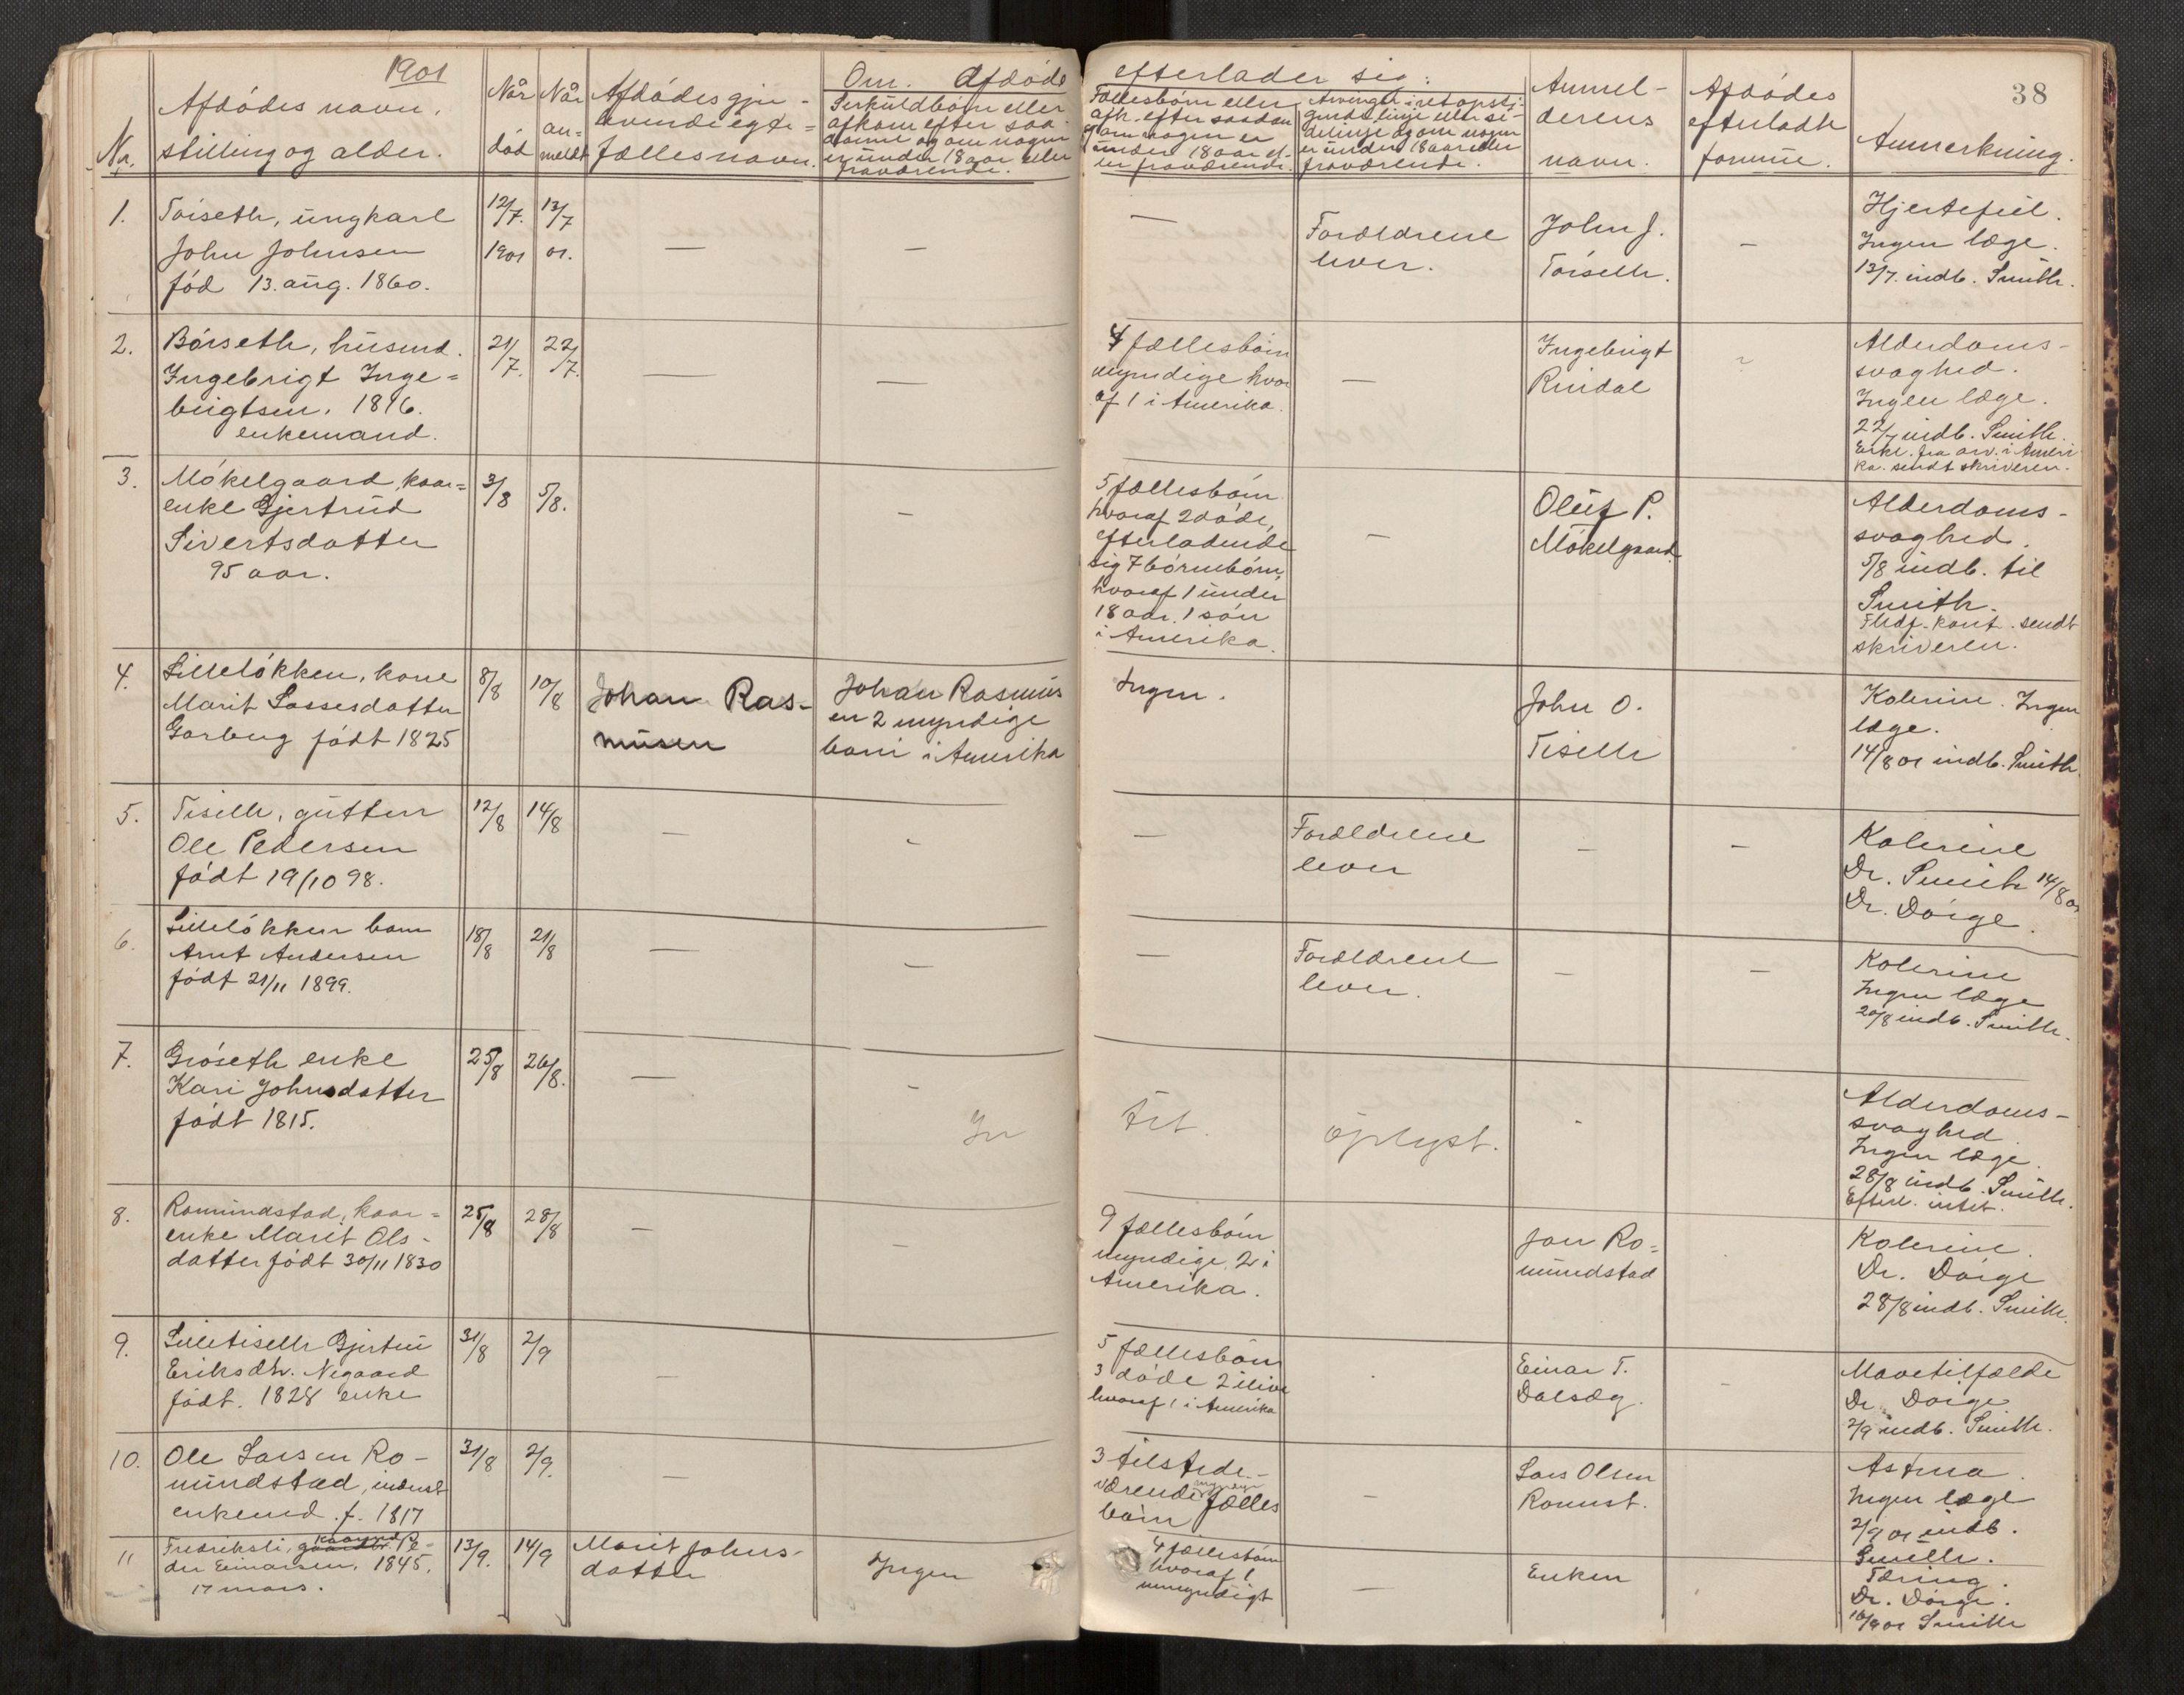 1901
38
No.
Afdödes navn,
stilling og alder.
Når
död
Når
an-
meldt
Afdödes gjen-
levende egte-
fælles navn.
Om Afdöde
efterlader sig:
Særkuldbörn eller
afkom efter saa-
danne og om nogen
er under 18 aar eller
fraværende.
Fællesbörn eller
afk. efter saadan
og om nogen er
under 18 aar el-
ler fraværende.
Arvinger i ret opsti-
gende linje eller si-
delinje og om nogen
er under 18 aar eller
fraværende.
Anmel-
derens
navn.
Afdödes
efterladte
formue.
Anmerkning.
1.
Töiseth, ungkarl
John Johnsen
död 13. aug. 1860.
12/7.
1901
13/7
01.
—
—
—
Forældrene
lever.
John J.
Töiseth.
—
Hjertefeil.
Ingen læge.
13/7. indb. Smith.
2.
Börseth, husmd.
Ingebrigt Inge=
brigtsen, 1816.
enkemand.
21/7.
22/7.
—
—
4 fællesbörn
myndige hvor
af 1 i Amerika.
—
Ingebrigt
Rindal
Alderdoms-
svaghed.
Ingen læge.
22/7 indb. Smith.
Erkl. fra arv. i Ameri
ka. sendt skriveren.
3.
Mökelgaard, kaar=
enke Gjertrud
Sivertsdatter
95 aar.
3/8
5/8.
—
5 fællesbörn
hvoraf 2 döde,
efterladende
sig 7 börnebörn,
hvoraf 1 under
18 aar. 1 sön
i Amerika.
—
Oluf P.
Mökelgaard.
Alderdoms-
svaghed.
5/8 indb. til
Smith.
sendt
skriveren.
4.
Lillelökken, kone
Marit Lassesdatter
Garberg födt 1825
8/8
10/8
Johan Ras-
musen
Johan Rasmus
en 2 myndige
barn i Amerika
Ingen.
John O.
Tiseth
Kolerine. Ingen
læge.
14/8 01 indb. Smith.
5.
Tiseth, gutten
Ole Pedersen
födt 19/10 98.
12/8
14/8
—
—
Forældrene
lever
—
—
Kolerine
Dr. Smith 14/8 01
Dr. Dörge.
6.
Lillelökken barn
Arnt Andersen
födt 21/11 1899.
18/8
21/8
—
—
—
Forældrene
lever.
—
—
Kolerine
Ingen læge
20/8 indb. Smith.
7.
Gröseth enke
Kari Johnsdatter
födt 1815.
25/8
26/8.
—
—
oplyst.
Alderdoms-
svaghed.
Ingen læge.
28/8 indb. Smith.
Efterl. intet.
8.
Romundstad, kaar=
enke Marit Ols-
datter födt 30/11 1830
25/8
28/8
—
—
9 fællesbörn
myndige. 2 i
Amerika.
Jon Ro=
mundstad
Kolerine.
Dr. Dörge
28/8 indb. Smith.
9.
Lilletiseth Gjertru
Eriksdtr. Negaard
födt. 1828 enke
31/8
2/9
—
5 fællesbörn
3 döde 2 ilive
hvoraf 1 i Amerika
Einar T.
Dalsæg.
—
Mavetilfælde
Dr. Dörge
2/9 indb. Smith.
10.
Ole Larsen Ro-
mundstad, inderst
enkemd. f. 1817
31/8
2/9.
—
3 tilstede-
værende myndige fælles
börn
—
Lars Olsen
Romust.
Astma.
Ingen læge
2/9 01 indb.
Smith.
11
Fredriksli, kaarmd Pe-
der Einarsen, 1845.
17 mars.
13/9.
14/9
Marit Johns-
datter
Ingen
4 fællesbörn
hvoraf 1
umyndigt
—
Enken
Tæring.
Dr. Dörge.
16/9 01 Smith